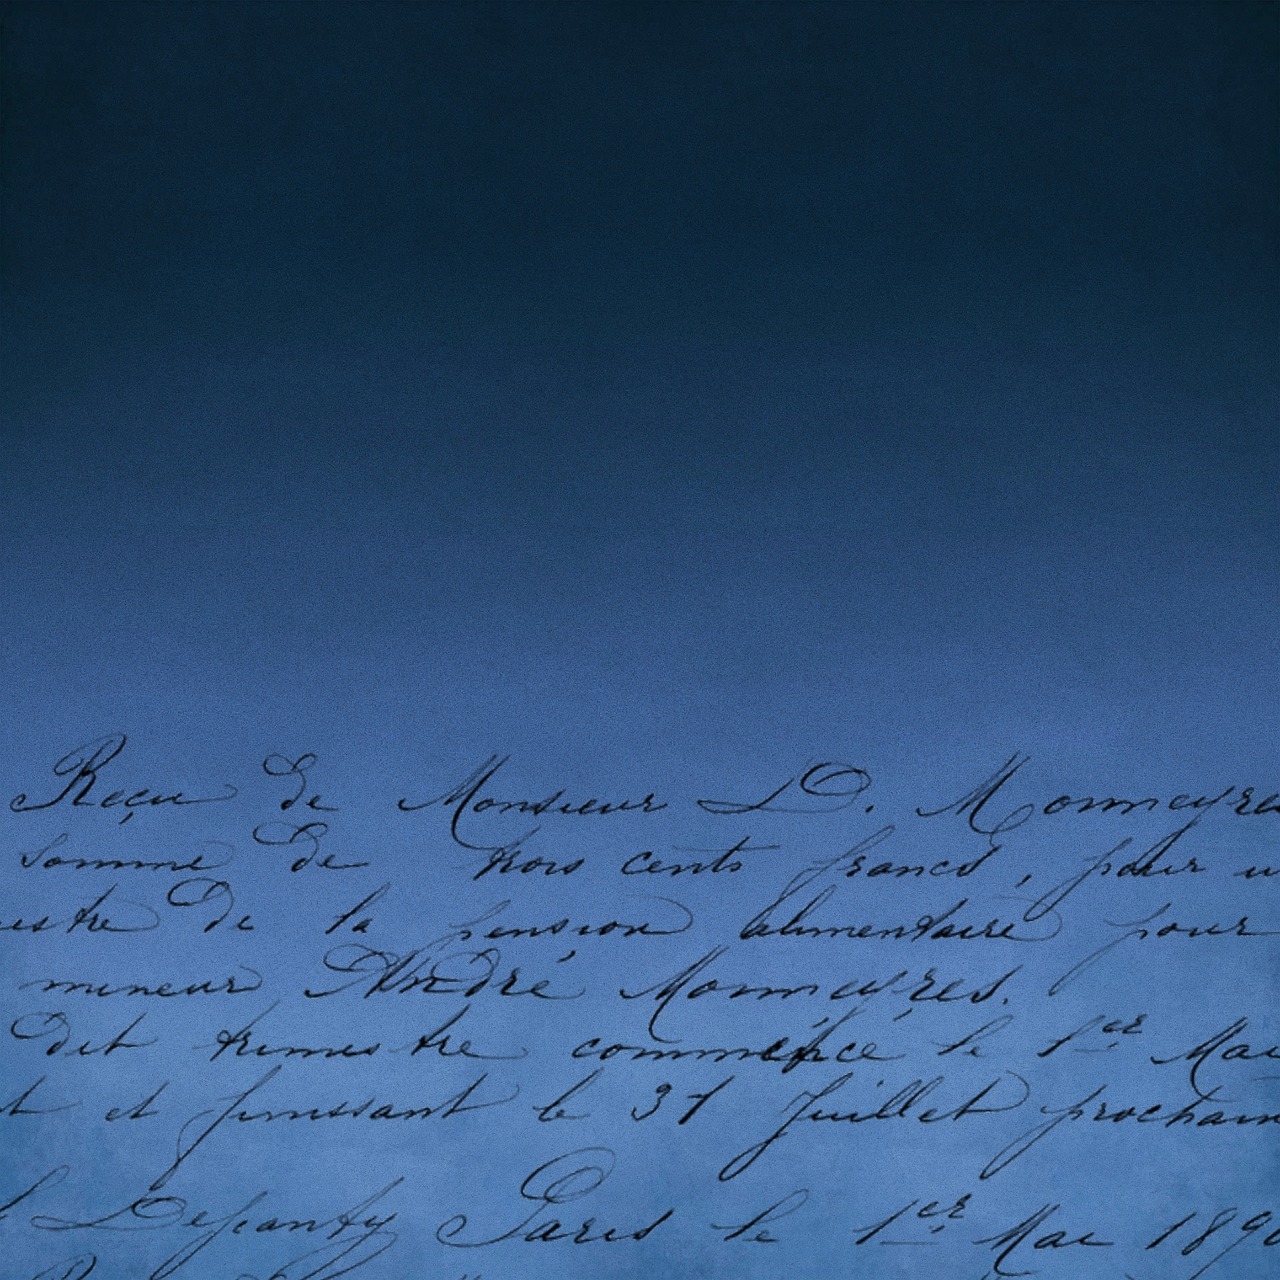 Reçu de Monsieur D. Monneyre
somme de trois cents francs, pour u
estre de la pension alimentaire pour
mineur André Monneyres.
Dit trimestre commencé le 1er Mai
t et finissant le 31 Juillet prochain
Paris le 1er Mai 189